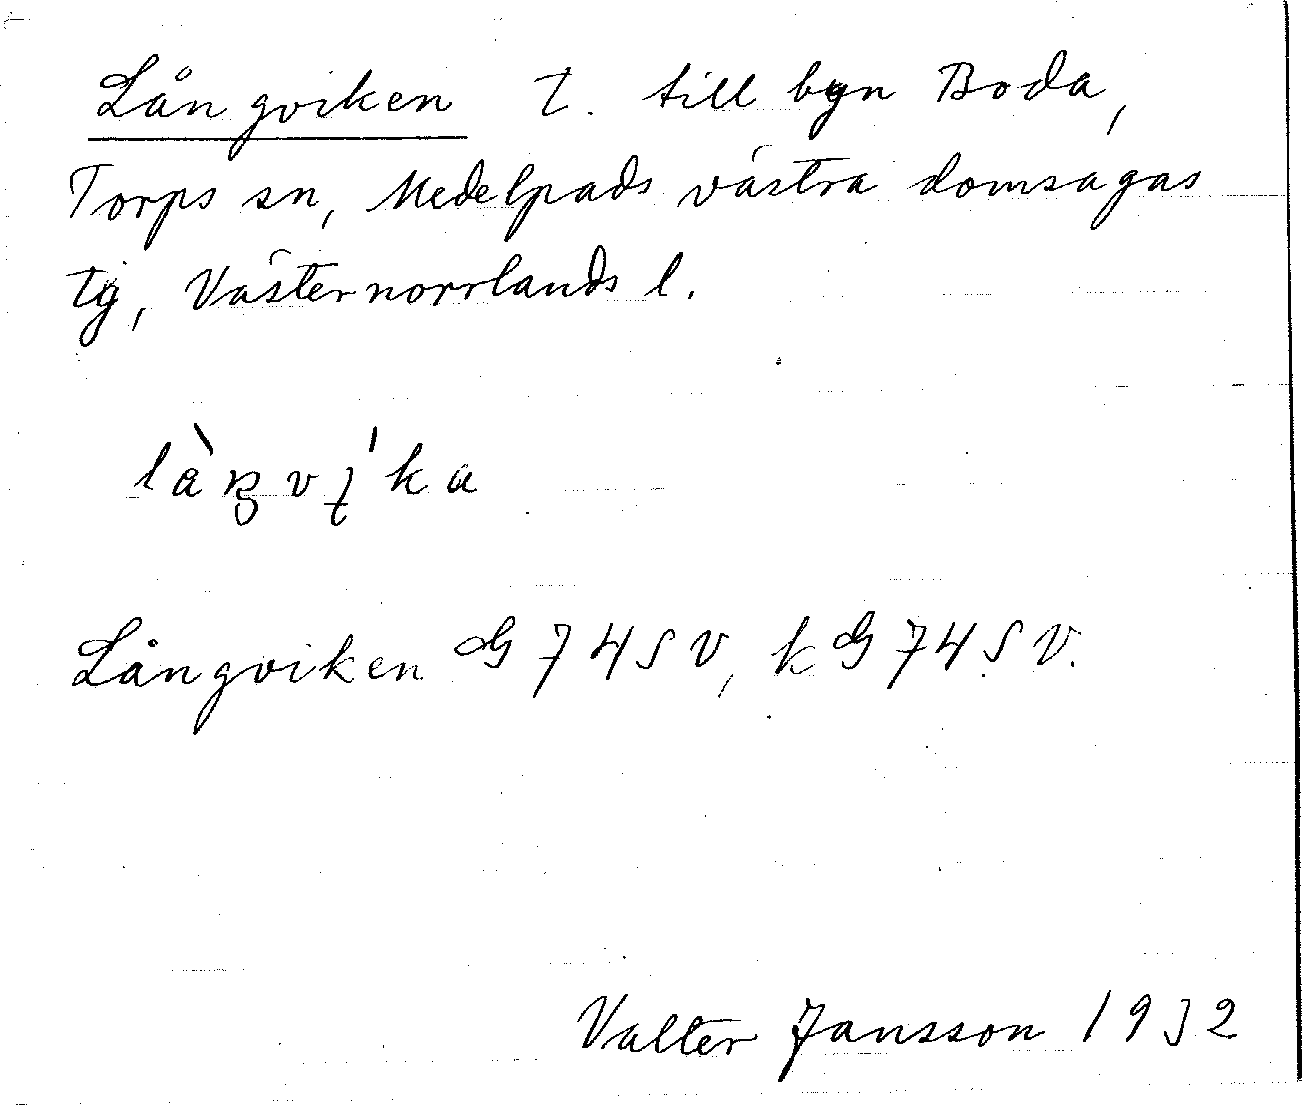 Långviken t. till byn Boda,
Torps sn, Medelpads västra domsagas
tg, Västernorrlands l.
Långviken G 74 SV, kG 74 SV.
Valter Jansson 1932